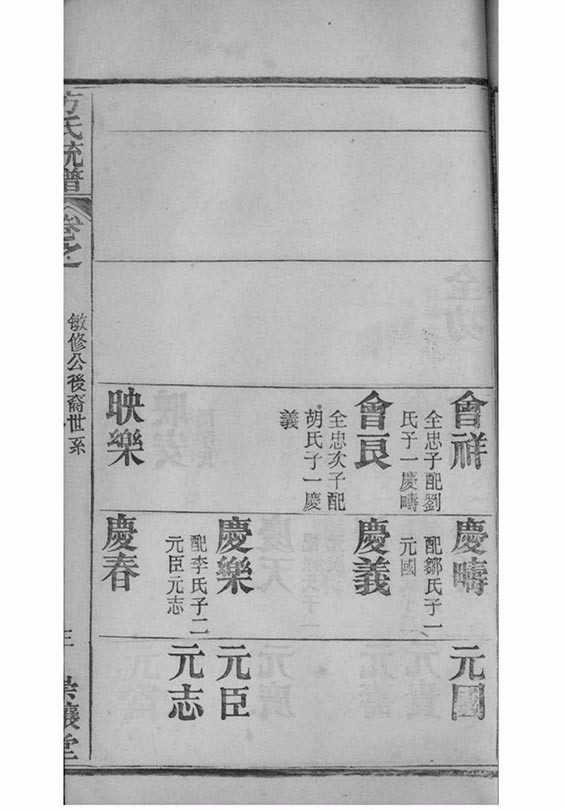 會祥
全忠子配劉
氏子一慶疇
會良
全忠次子配
胡氏子一慶
義
映樂
慶疇
配鄒氏子一
元國
慶義
慶樂
配李氏子二
元臣元志
慶春
元國
元臣
元志
方氏統譜
卷之
敏修公後裔世系
三
堂